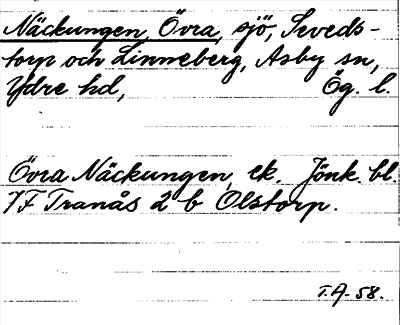 Näckungen, Övra, sjö, Sveds-
torp och Linneberg, Asby sn,
Ydre hd, Ög. l.
Övra Näckungen, ek. Jönk. bl.
7F Tranås 2 b Olstorp.
T.A. 58.